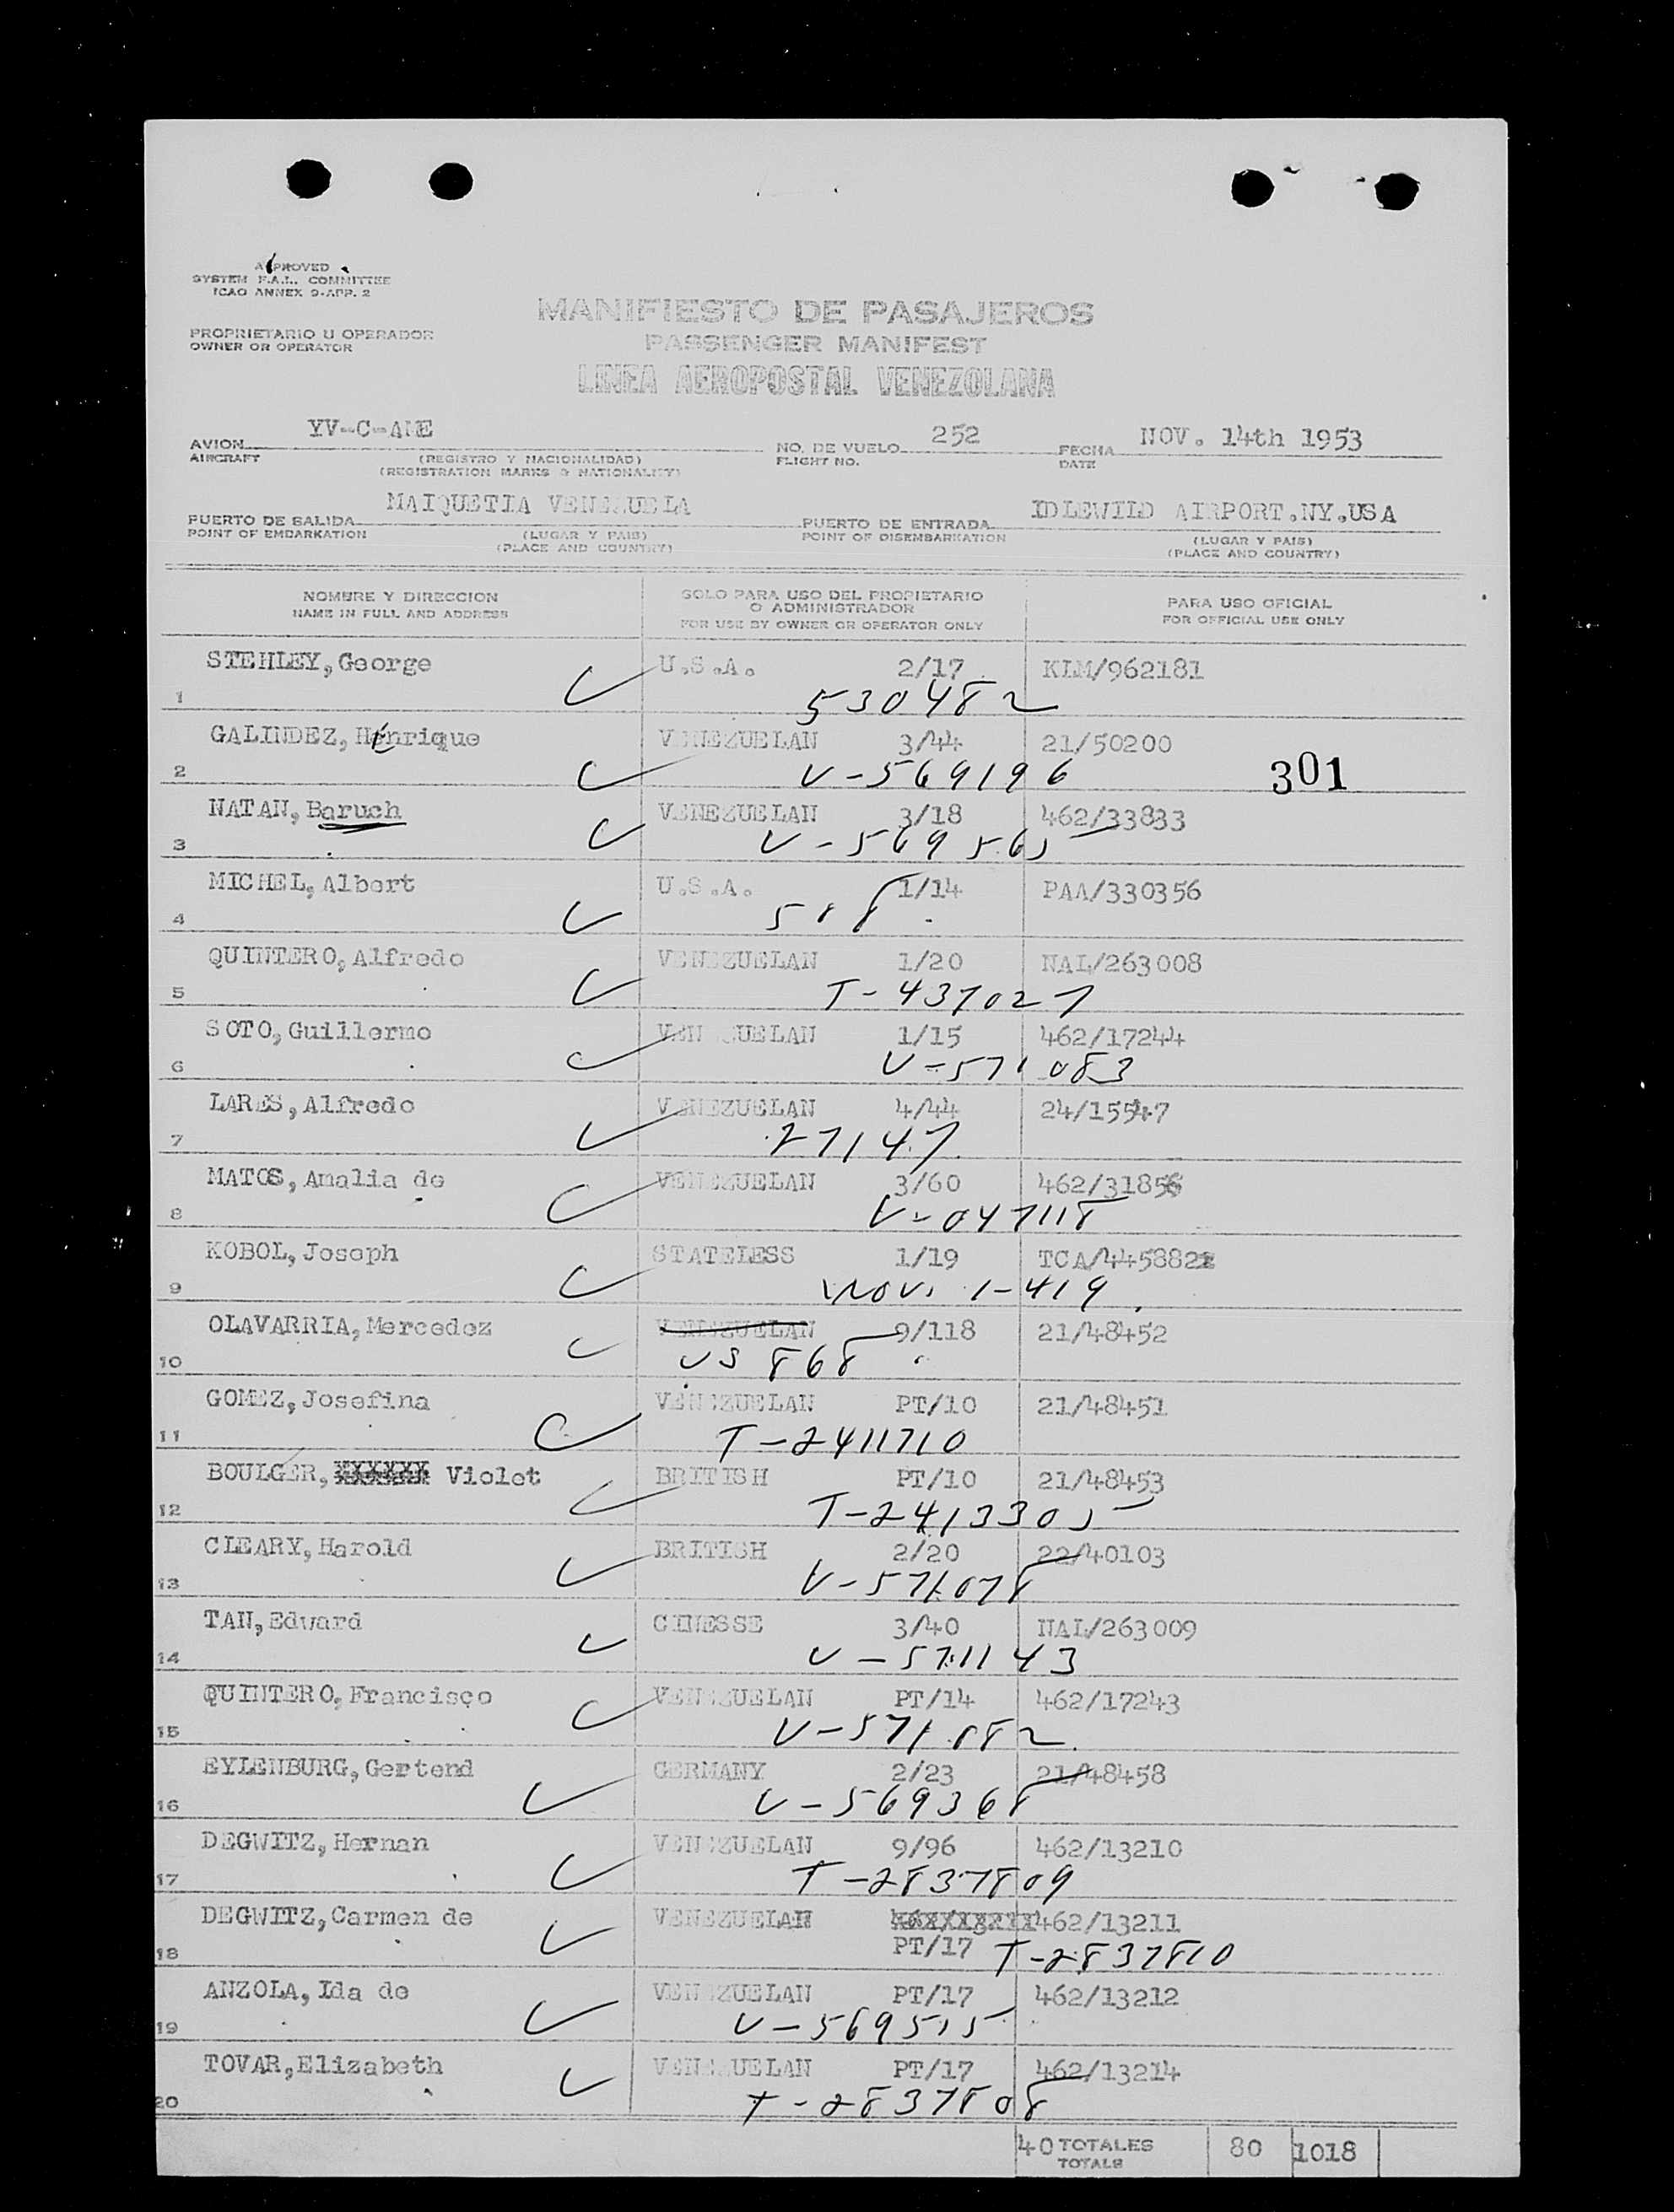 APPROVED
SYSTEM F.A.L. COMMITTEE
ICAO ANNEX 9-APP. 2
MANIFIESTO DE PASAJEROS
PROPRIETARIO U OPERADOR
OWNER OR OPERATOR
PASSENGER MANIFEST
LINEA AEROPOSTAL VENEZOLANA
AVION YV-C-AME NO. DE VUELO 252 FECHA NOV. 14th 1953
AIRCRAFT (REGISTRO Y NACIONALIDAD) FLIGHT NO. DATE
(REGISTRATION MARKS & NATIONALITY)
PUERTO DE SALIDA MAIQUETIA VENEZUELA PUERTO DE ENTRADA IDLEWILD AIRPORT.NY.USA
POINT OF EMBARKATION (LUGAR Y PAIS) POINT OF DISEMBARKATION (LUGAR Y PAIS)
(PLACE AND COUNTRY) (PLACE AND COUNTRY)
NOMBRE Y DIRECCION SOLO PARA USO DEL PROPIETARIO O ADMINISTRADOR PARA USO OFICIAL
NAME IN FULL AND ADDRESS FOR USE BY OWNER OR OPERATOR ONLY FOR OFFICIAL USE ONLY
STEHLEY, George U.S.A. 2/17 KLM/962181
1 530482
GALINDEZ, Henrique VENEZUELAN 3/44 21/50200
2 V-569196 301
NATAN, Baruch VENEZUELAN 3/18 462/33833
3 V-569565
MICHEL, Albert U.S.A. 1/14 PAA/330356
4 588
QUINTERO, Alfredo VENEZUELAN 1/20 NAL/263008
5 T-437027
SOTO, Guillermo VENEZUELAN 1/15 462/17244
6 V-571083
LARES, Alfredo VENEZUELAN 4/44 24/15547
7 27147
MATOS, Amalia de VENEZUELAN 3/60 462/31856
8 V-047118
KOBOL, Joseph STATELESS 1/19 TCA/445882
9 1-419
OLAVARRIA, Mercedez VENEZUELAN 9/118 21/48452
10 US 868
GOMEZ, Josefina VENEZUELAN PT/10 21/48451
11 T-2411710
BOULGER, Violet BRITISH PT/10 21/48453
12 T-2413305
CLEARY, Harold BRITISH 2/20 22/40103
13 V-571078
TAN, Edward CINESSE 3/40 NAL/263009
14 V-571143
QUINTERO, Francisço VENEZUELAN PT/14 462/17243
15 V-571082
EYLENBURG, Gertend GERMANY 2/23 21/48458
16 V-569368
DEGWITZ, Hernan VENEZUELAN 9/96 462/13210
17 T-2837809
DEGWITZ, Carmen de VENEZUELAN 462/13211
18 PT/17 T-2837810
ANZOLA, Ida de VENEZUELAN PT/17 462/13212
19 V-569515
TOVAR, Elizabeth VENEZUELAN PT/17 462/13214
20 T-2837808
40 TOTALES 80 1018
TOTALS